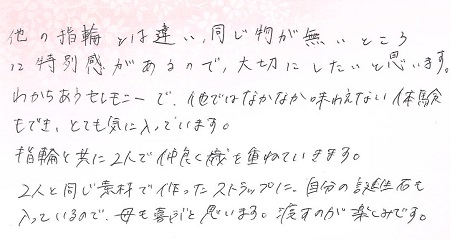 他の指輪とは違い、同じ物が無いところ
に特別感があるので、大切にしたいと思います。
わかちあうセレモニーで、他ではなかなか味わえない体験
もでき、とても気に入っています。
指輪と共に2人で仲良く歳を重ねていきます。
2人と同じ素材で作ったストラップに、自分の誕生石も
入っているので、母も喜ぶと思います。渡すのが楽しみです。